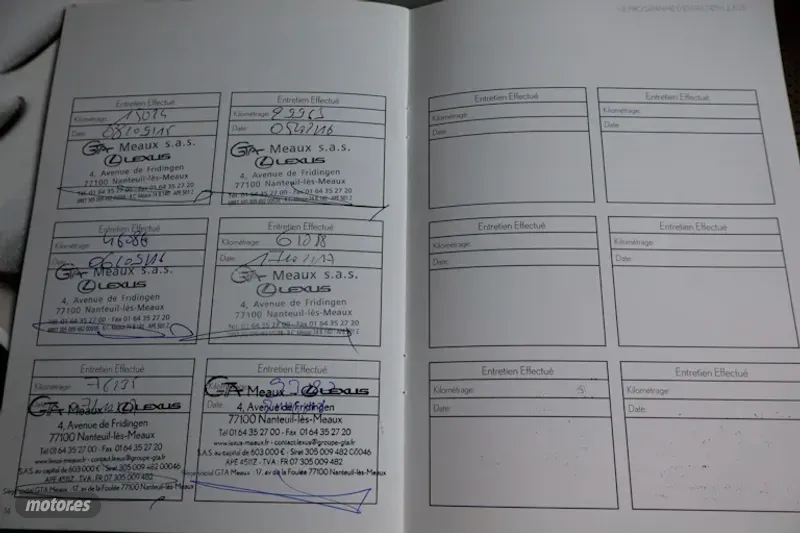 Entretien Effectué
Kilométrage: 15014
Date:
GTA Meaux s.a.s.
LEXUS
4, Avenue de Fridingen
77100 Nanteuil-lès-Meaux
Tél. 01 64 35 27 00 - Fax 01 64 35 27 20
Entretien Effectué
Kilométrage:
Date:
GTA Meaux s.a.s.
LEXUS
4, Avenue de Fridingen
77100 Nanteuil-lès-Meaux
Tél. 01 64 35 27 00 - Fax 01 64 35 27 20
Entretien Effectué
Kilométrage:
Date: 06/09/16
GTA Meaux s.a.s.
LEXUS
4, Avenue de Fridingen
77100 Nanteuil-lès-Meaux
Entretien Effectué
Kilométrage:
Date:
GTA Meaux s.a.s.
LEXUS
4, Avenue de Fridingen
77100 Nanteuil-lès-Meaux
Tél. 01 64 35 27 00 - Fax 01 64 35 27 20
Entretien Effectué
Kilométrage:
GTA Meaux LEXUS
4, Avenue de Fridingen
77100 Nanteuil-lès-Meaux
Tél 01 64 35 27 00 - Fax 01 64 35 27 20
www.lexus-meaux.fr - contact.lexus@groupe-gta.fr
S.A.S. au capital de 603 000 € - Siret 305 009 482 00046
APE 4511Z - TVA : FR 07 305 009 482
Siège social GTA Meaux : 17, av de la Foulée 77100 Nanteuil-lès-Meaux
Entretien Effectué
Kilométrage:
GTA Meaux LEXUS
Date:
4, Avenue de Fridingen
77100 Nanteuil-lès-Meaux
Tél 01 64 35 27 00 - Fax 01 64 35 27 20
www.lexus-meaux.fr - contact.lexus@groupe-gta.fr
S.A.S. au capital de 603 000 € - Siret 305 009 482 00046
APE 4511Z - TVA : FR 07 305 009 482
Siège social GTA Meaux : 17, av de la Foulée 77100 Nanteuil-lès-Meaux
Entretien Effectué
Kilométrage:
Date:
Entretien Effectué
Kilométrage:
Date:
Entretien Effectué
Kilométrage:
Date:
Entretien Effectué
Kilométrage:
Date:
Entretien Effectué
Kilométrage:
Date:
Entretien Effectué
Kilométrage:
Date:
motor.es